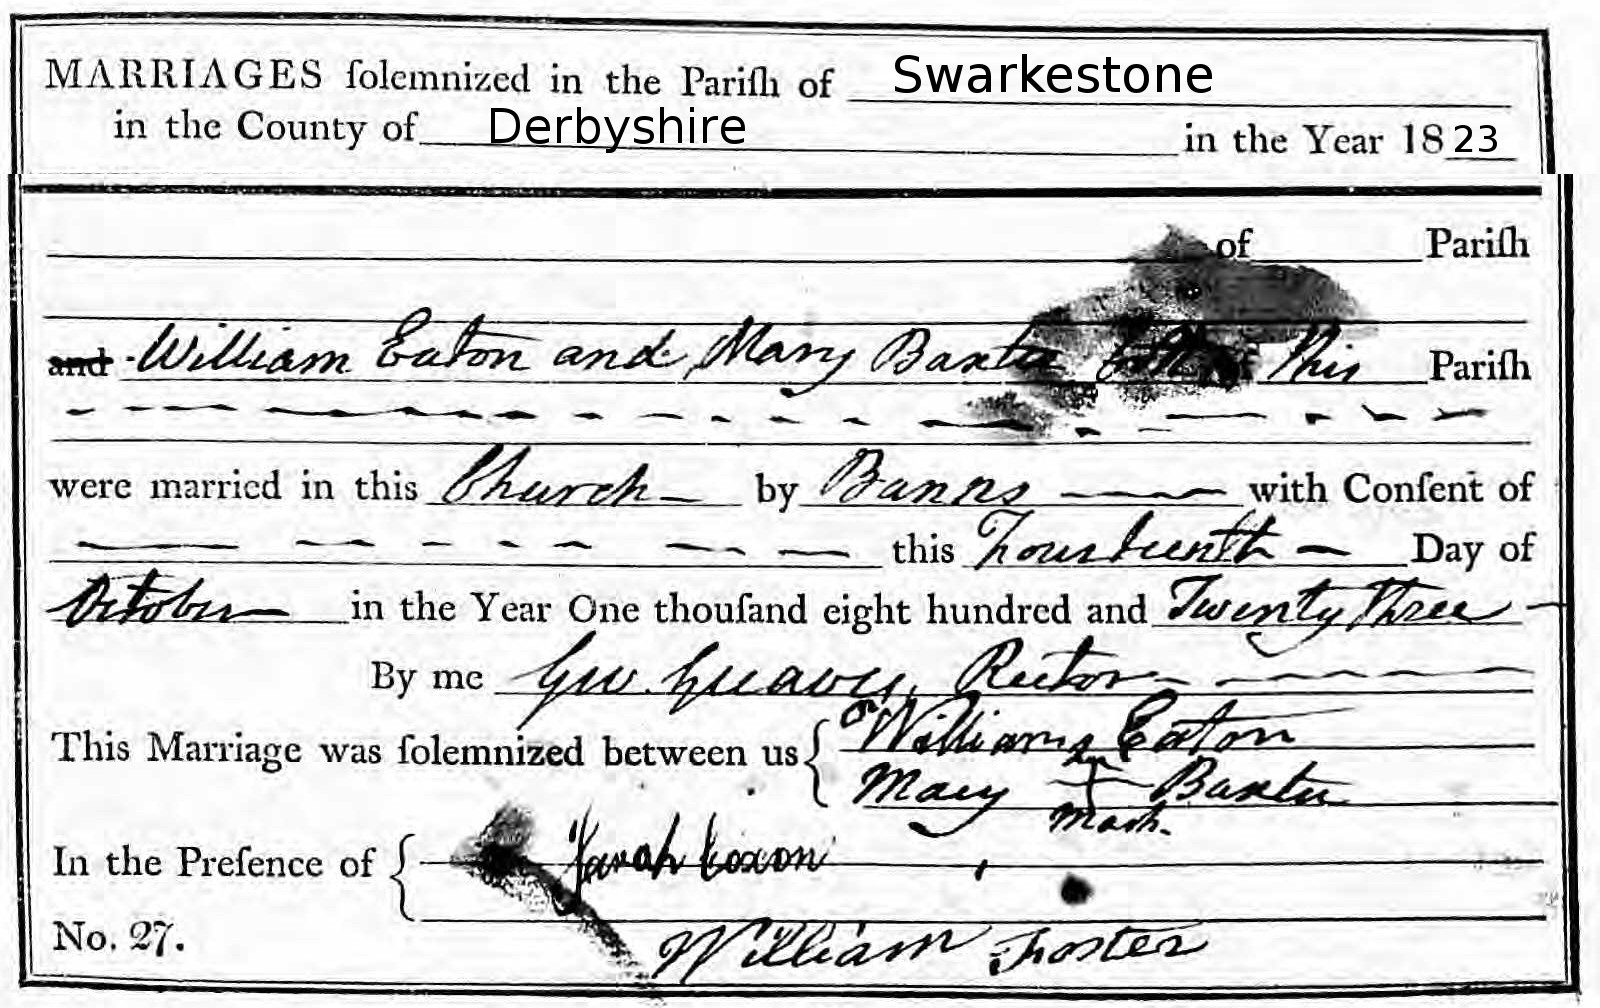 MARRIAGES ſolemnized in the Pariſh of Swarkestone
in the County of Derbyshire in the Year 1823
of Pariſh
and William Eaton and Mary Baxter both of this Pariſh
were married in this Church by Banns with Conſent of
this Fourteenth Day of
October in the Year One thouſand eight hundred and Twenty Three
By me Greaves, Rector
This Marriage was ſolemnized between us William Eaton
Mary Baxter
mark.
In the Preſence of Sarah Coxon
William Foster
No. 27.